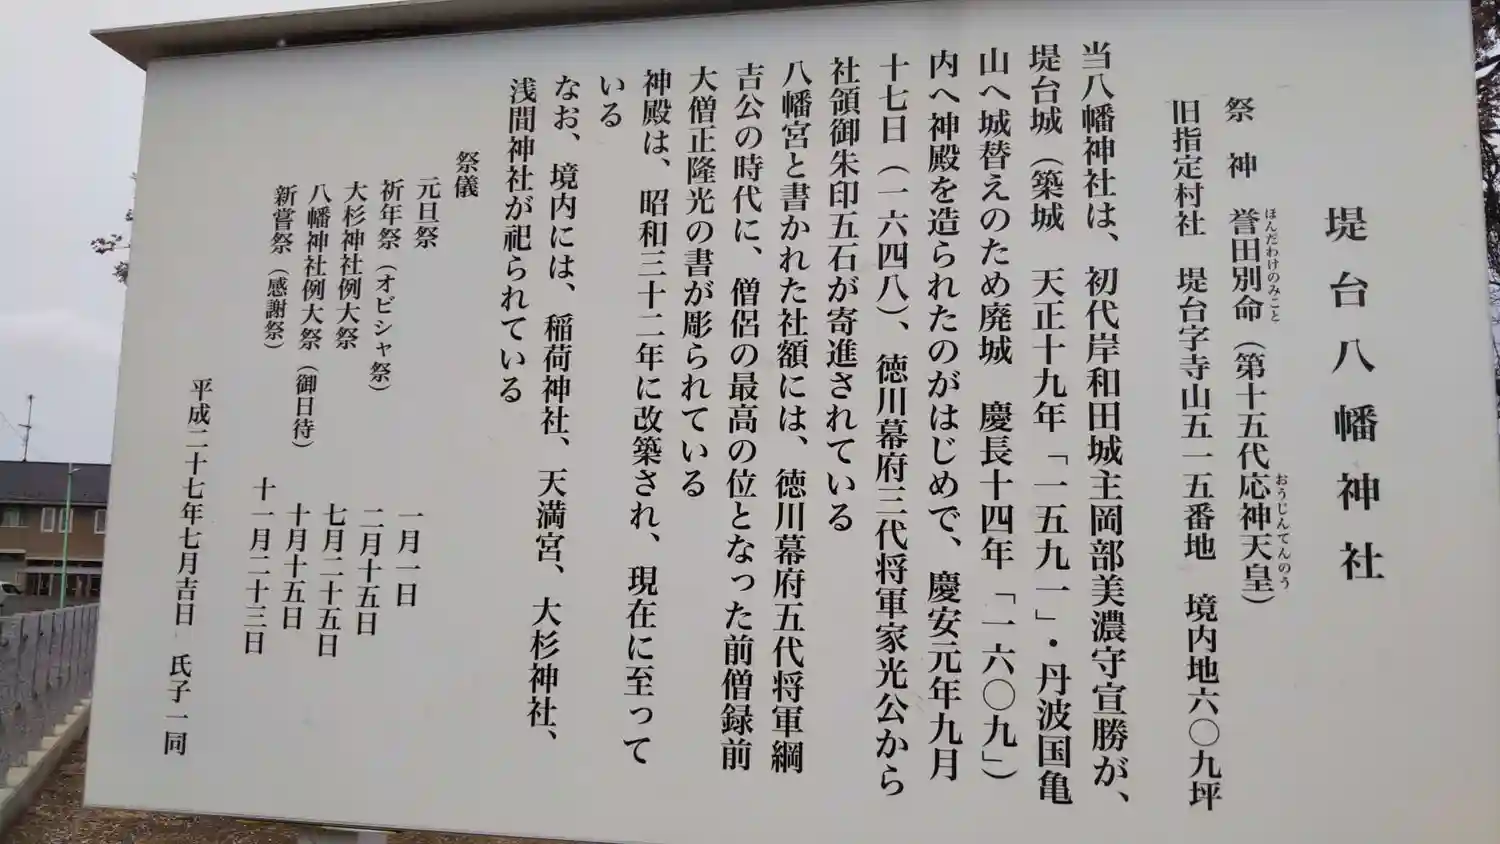 堤台八幡神社
祭神　誉田別命（第十五代応神天皇）
ほんだわけのみこと
おうじんてんのう
旧指定村社　堤台字寺山五一五番地　境内地六〇九坪
当八幡神社は、初代岸和田城主岡部美濃守宣勝が、
堤台城（築城　天正十九年「一五九一」・丹波国亀
山へ城替えのため廃城　慶長十四年「一六〇九」）
内へ神殿を造られたのがはじめで、慶安元年九月
十七日（一六四八）、徳川幕府三代将軍家光公から
社領御朱印五石が寄進されている
八幡宮と書かれた社額には、徳川幕府五代将軍綱
吉公の時代に、僧侶の最高の位となった前僧録前
大僧正隆光の書が彫られている
神殿は、昭和三十二年に改築され、現在に至って
いる
なお、境内には、稲荷神社、天満宮、大杉神社、
浅間神社が祀られている
祭儀
元旦祭　一月一日
祈年祭（オビシャ祭）　二月十五日
大杉神社例大祭　七月二十五日
八幡神社例大祭（御日待）　十月十五日
新嘗祭（感謝祭）　十一月二十三日
平成二十七年七月吉日　氏子一同